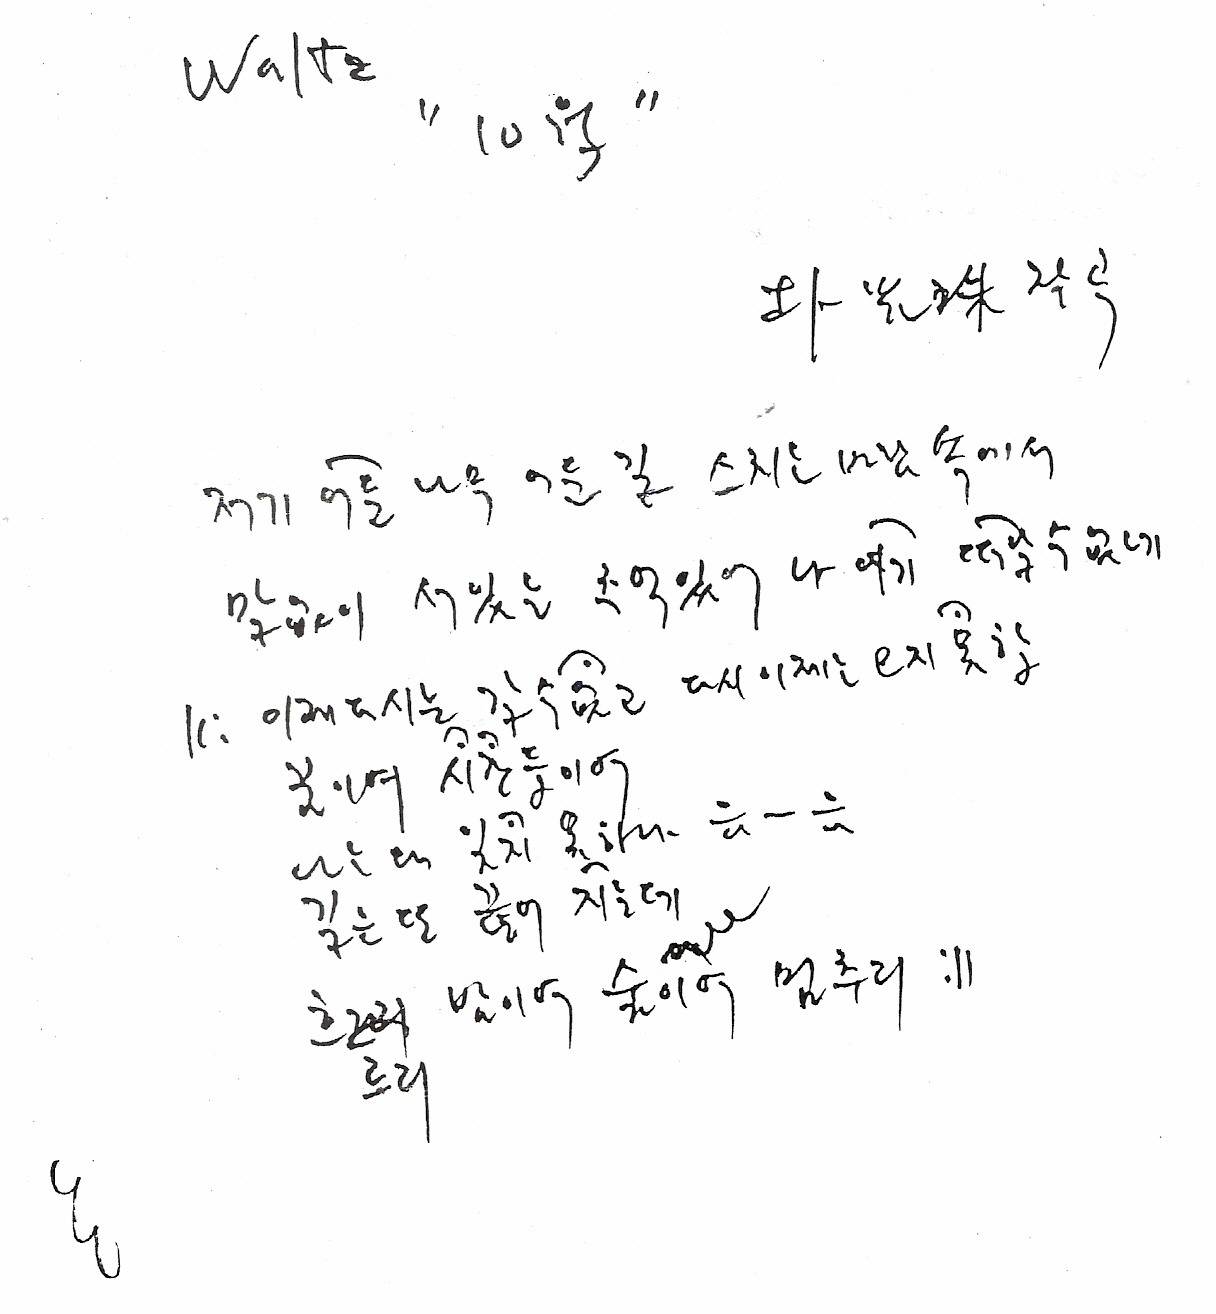 Waltz
"10월"
光珠 작곡
저기 어둔 나무 어둔 길 스치는 바람 속에서
말없이 서있는 추억있어 나 여기 떠날 수 없네
이제 다시는 갈 수 없고 다시 이제는 오지 못할
꽃이여 시간들이여
나는 왜 잊지 못하나 음-음
깊은 달 끝에 지는데
밤이여 숲이여 멈추리 :||
르리